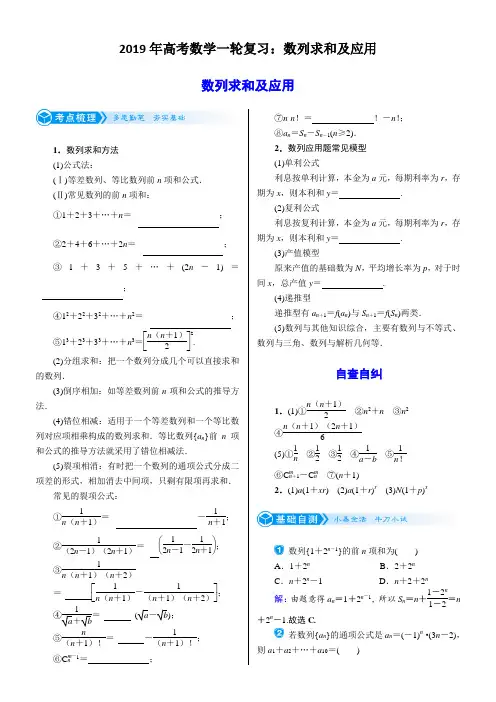 2019年高考数学一轮复习：数列求和及应用
数列求和及应用
考点梳理 多思勤笔 夯实基础
1．数列求和方法
(1)公式法：
(Ⅰ)等差数列、等比数列前 n 项和公式．
(Ⅱ)常见数列的前 n 项和：
①1＋2＋3＋…＋n＝ ；
②2＋4＋6＋…＋2n＝ ；
③1＋3＋5＋…＋(2n－1)＝
；
④1²＋2²＋3²＋…＋n²＝ ；
⑤1³＋2³＋3³＋…＋n³＝[n（n＋1）/2]²．
(2)分组求和：把一个数列分成几个可以直接求和
的数列．
(3)倒序相加：如等差数列前 n 项和公式的推导方
法．
(4)错位相减：适用于一个等差数列和一个等比数
列对应项相乘构成的数列求和．等比数列{aₙ}前 n 项
和公式的推导方法就采用了错位相减法．
(5)裂项相消：有时把一个数列的通项公式分成二
项差的形式，相加消去中间项，只剩有限项再求和．
常见的裂项公式：
①1/n（n＋1）＝ －1/(n＋1)；
②1/（2n－1）（2n＋1）＝ (1/(2n－1)－1/(2n＋1))；
③1/n（n＋1）（n＋2）
＝ [1/n（n＋1）－1/（n＋1）（n＋2）]；
④1/(√a＋√b)＝ (√a－√b)；
⑤n/（n＋1）！＝ －1/（n＋1）！；
⑥Cₙᵐ⁻¹＝ ；
⑦n·n！＝ ！－n！；
⑧aₙ＝Sₙ－Sₙ₋₁(n≥2)．
2．数列应用题常见模型
(1)单利公式
利息按单利计算，本金为 a 元，每期利率为 r，存
期为 x，则本利和 y＝ ．
(2)复利公式
利息按复利计算，本金为 a 元，每期利率为 r，存
期为 x，则本利和 y＝ ．
(3)产值模型
原来产值的基础数为 N，平均增长率为 p，对于时
间 x，总产值 y＝ ．
(4)递推型
递推型有 aₙ₊₁＝f(aₙ)与 Sₙ₊₁＝f(Sₙ)两类．
(5)数列与其他知识综合，主要有数列与不等式、
数列与三角、数列与解析几何等．
自查自纠
1．(1)①n（n＋1）/2 ②n²＋n ③n²
④n（n＋1）（2n＋1）/6
(5)①1/n ②1/2 ③1/2 ④1/(a－b) ⑤1/n！
⑥Cₙ₊₁ᵐ－Cₙᵐ ⑦(n＋1)
2．(1)a(1＋xr) (2)a(1＋r)ˣ (3)N(1＋p)ˣ
基础自测 小善全活 牛刀小试
1 数列{1＋2ⁿ⁻¹}的前 n 项和为( )
A．1＋2ⁿ B．2＋2ⁿ
C．n＋2ⁿ－1 D．n＋2＋2ⁿ
解：由题意得 aₙ＝1＋2ⁿ⁻¹，所以 Sₙ＝n＋(1－2ⁿ)/(1－2)＝n
＋2ⁿ－1.故选 C.
2 若数列{aₙ}的通项公式是 aₙ＝(－1)ⁿ·(3n－2)，
则 a₁＋a₂＋…＋a₁₀＝( )